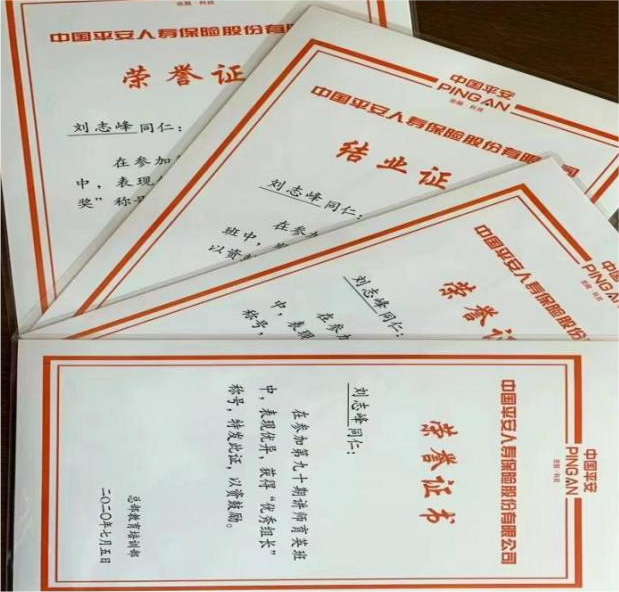 金融·科技
中国平安人寿保险股份有
荣誉证
刘志峰同仁：
在参加
中，表现
奖”称号
中国平安
PINGAN
金融·科技
中国平安人寿保险股份有限公司
结业证
刘志峰同仁：
在参加
班中，
以资
中国平
PING AN
金融·科技
中国平安人寿保险股份有
荣誉证
刘志峰同仁：
在参
中，表现
称号，
中国平安
PINGAN
金融·科技
中国平安人寿保险股份有限公司
荣誉证书
刘志峰同仁：
在参加第九十期讲师育英班
中，表现优异，获得“优秀组长”
称号，特发此证，以资鼓励。
总部教育培训部
二〇二〇年七月五日